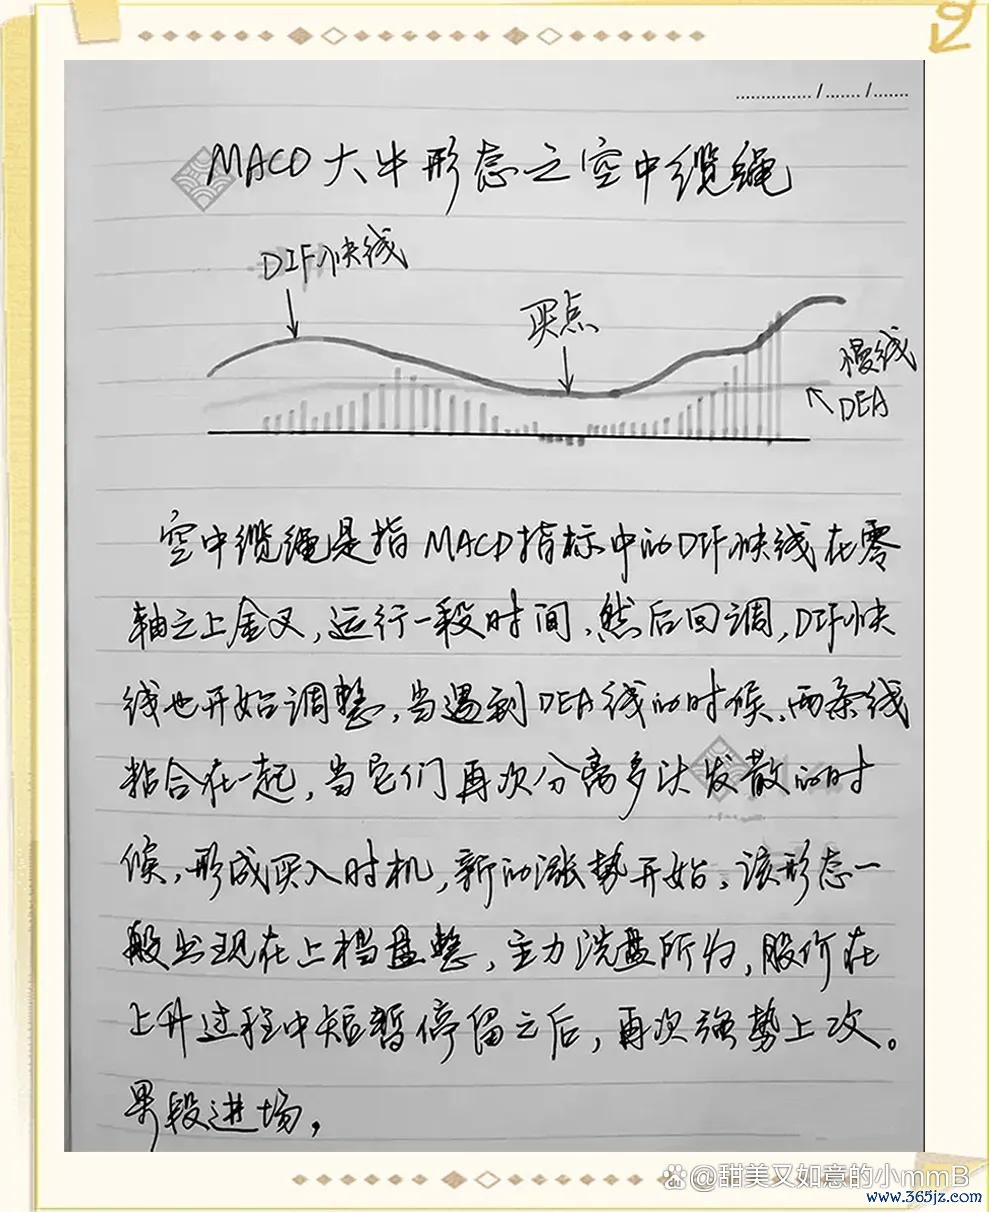 ............... / ....... / .......
MACD大牛形态之空中缆绳
DIF快线
买点
慢线
DEA
空中缆绳是指MACD指标中的DIF快线在零
轴之上金叉,运行一段时间,然后回调,DIF快
线也开始调整,当遇到DEA线的时候,两条线
粘合在一起,当它们再次分离多头发散的时
候,形成买入时机,新的涨势开始。该形态一
般出现在上档盘整,主力洗盘所为,股价在
上升过程中短暂停留之后,再次强势上攻。
果段进场,
@甜美又如意的小mmB
www.365jz.com